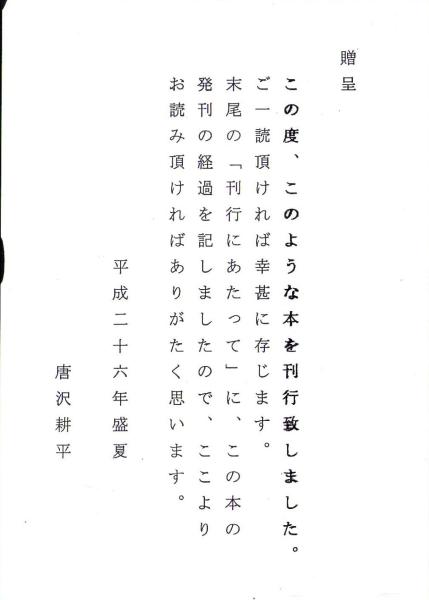 贈呈
この度、このような本を刊行致しました。
ご一読頂ければ幸甚に存じます。
末尾の「刊行にあたって」に、この本の
発刊の経過を記しましたので、ここより
お読み頂ければありがたく思います。
平成二十六年盛夏
唐沢耕平